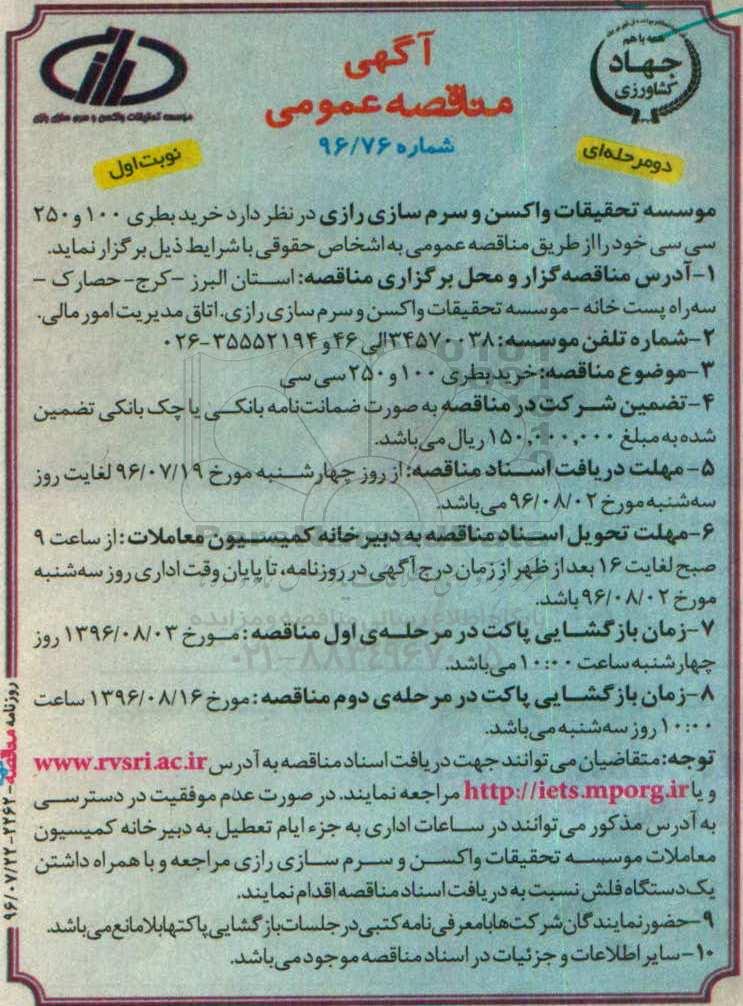 همه با هم
جهاد
کشاورزی
آگهی
مناقصه عمومی
شماره ۹۶/۷۶
موسسه تحقیقات واکسن و سرم سازی رازی
دو مرحله‌ای
نوبت اول
موسسه تحقیقات واکسن و سرم سازی رازی در نظر دارد خرید بطری ۱۰۰ و ۲۵۰
سی سی خود را از طریق مناقصه عمومی به اشخاص حقوقی با شرایط ذیل برگزار نماید.
۱-آدرس مناقصه گزار و محل برگزاری مناقصه: استان البرز -کرج- حصارک -
سه راه پست خانه -موسسه تحقیقات واکسن و سرم سازی رازی. اتاق مدیریت امور مالی.
۲-شماره تلفن موسسه: ۳۴۵۷۰۰۳۸ الی ۴۶ و ۳۵۵۵۲۱۹۴-۰۲۶
۳-موضوع مناقصه: خرید بطری ۱۰۰ و ۲۵۰ سی سی
۴-تضمین شرکت در مناقصه به صورت ضمانت‌نامه بانکی یا چک بانکی تضمین
شده به مبلغ ۱۵۰,۰۰۰,۰۰۰ ریال می‌باشد.
۵- مهلت دریافت اسناد مناقصه: از روز چهارشنبه مورخ ۹۶/۰۷/۱۹ لغایت روز
سه‌شنبه مورخ ۹۶/۰۸/۰۲ می‌باشد.
۶-مهلت تحویل اسناد مناقصه به دبیرخانه کمیسیون معاملات: از ساعت ۹
صبح لغایت ۱۶ بعد از ظهر از زمان درج آگهی در روزنامه، تا پایان وقت اداری روز سه‌شنبه
مورخ ۹۶/۰۸/۰۲ باشد.
۷-زمان بازگشایی پاکت در مرحله‌ی اول مناقصه: مورخ ۱۳۹۶/۰۸/۰۳ روز
چهارشنبه ساعت ۱۰:۰۰ می‌باشد.
۸-زمان بازگشایی پاکت در مرحله‌ی دوم مناقصه: مورخ ۱۳۹۶/۰۸/۱۶ ساعت
۱۰:۰۰ روز سه‌شنبه می‌باشد.
توجه: متقاضیان می‌توانند جهت دریافت اسناد مناقصه به آدرس www.rvsri.ac.ir
و یا http://iets.mporg.ir مراجعه نمایند. در صورت عدم موفقیت در دسترسی
به آدرس مذکور می‌توانند در ساعات اداری به جزء ایام تعطیل به دبیرخانه کمیسیون
معاملات موسسه تحقیقات واکسن و سرم سازی رازی مراجعه و با همراه داشتن
یک دستگاه فلش نسبت به دریافت اسناد مناقصه اقدام نمایند.
۹-حضور نمایندگان شرکت‌ها با معرفی نامه کتبی در جلسات بازگشایی پاکتها بلامانع می‌باشد.
۱۰-سایر اطلاعات و جزئیات در اسناد مناقصه موجود می‌باشد.
روزنامه مناقصه -۲۲۶۲-۹۶/۰۷/۲۲
۰۲۱-۸۸۳۴۹۶۷۰-۵